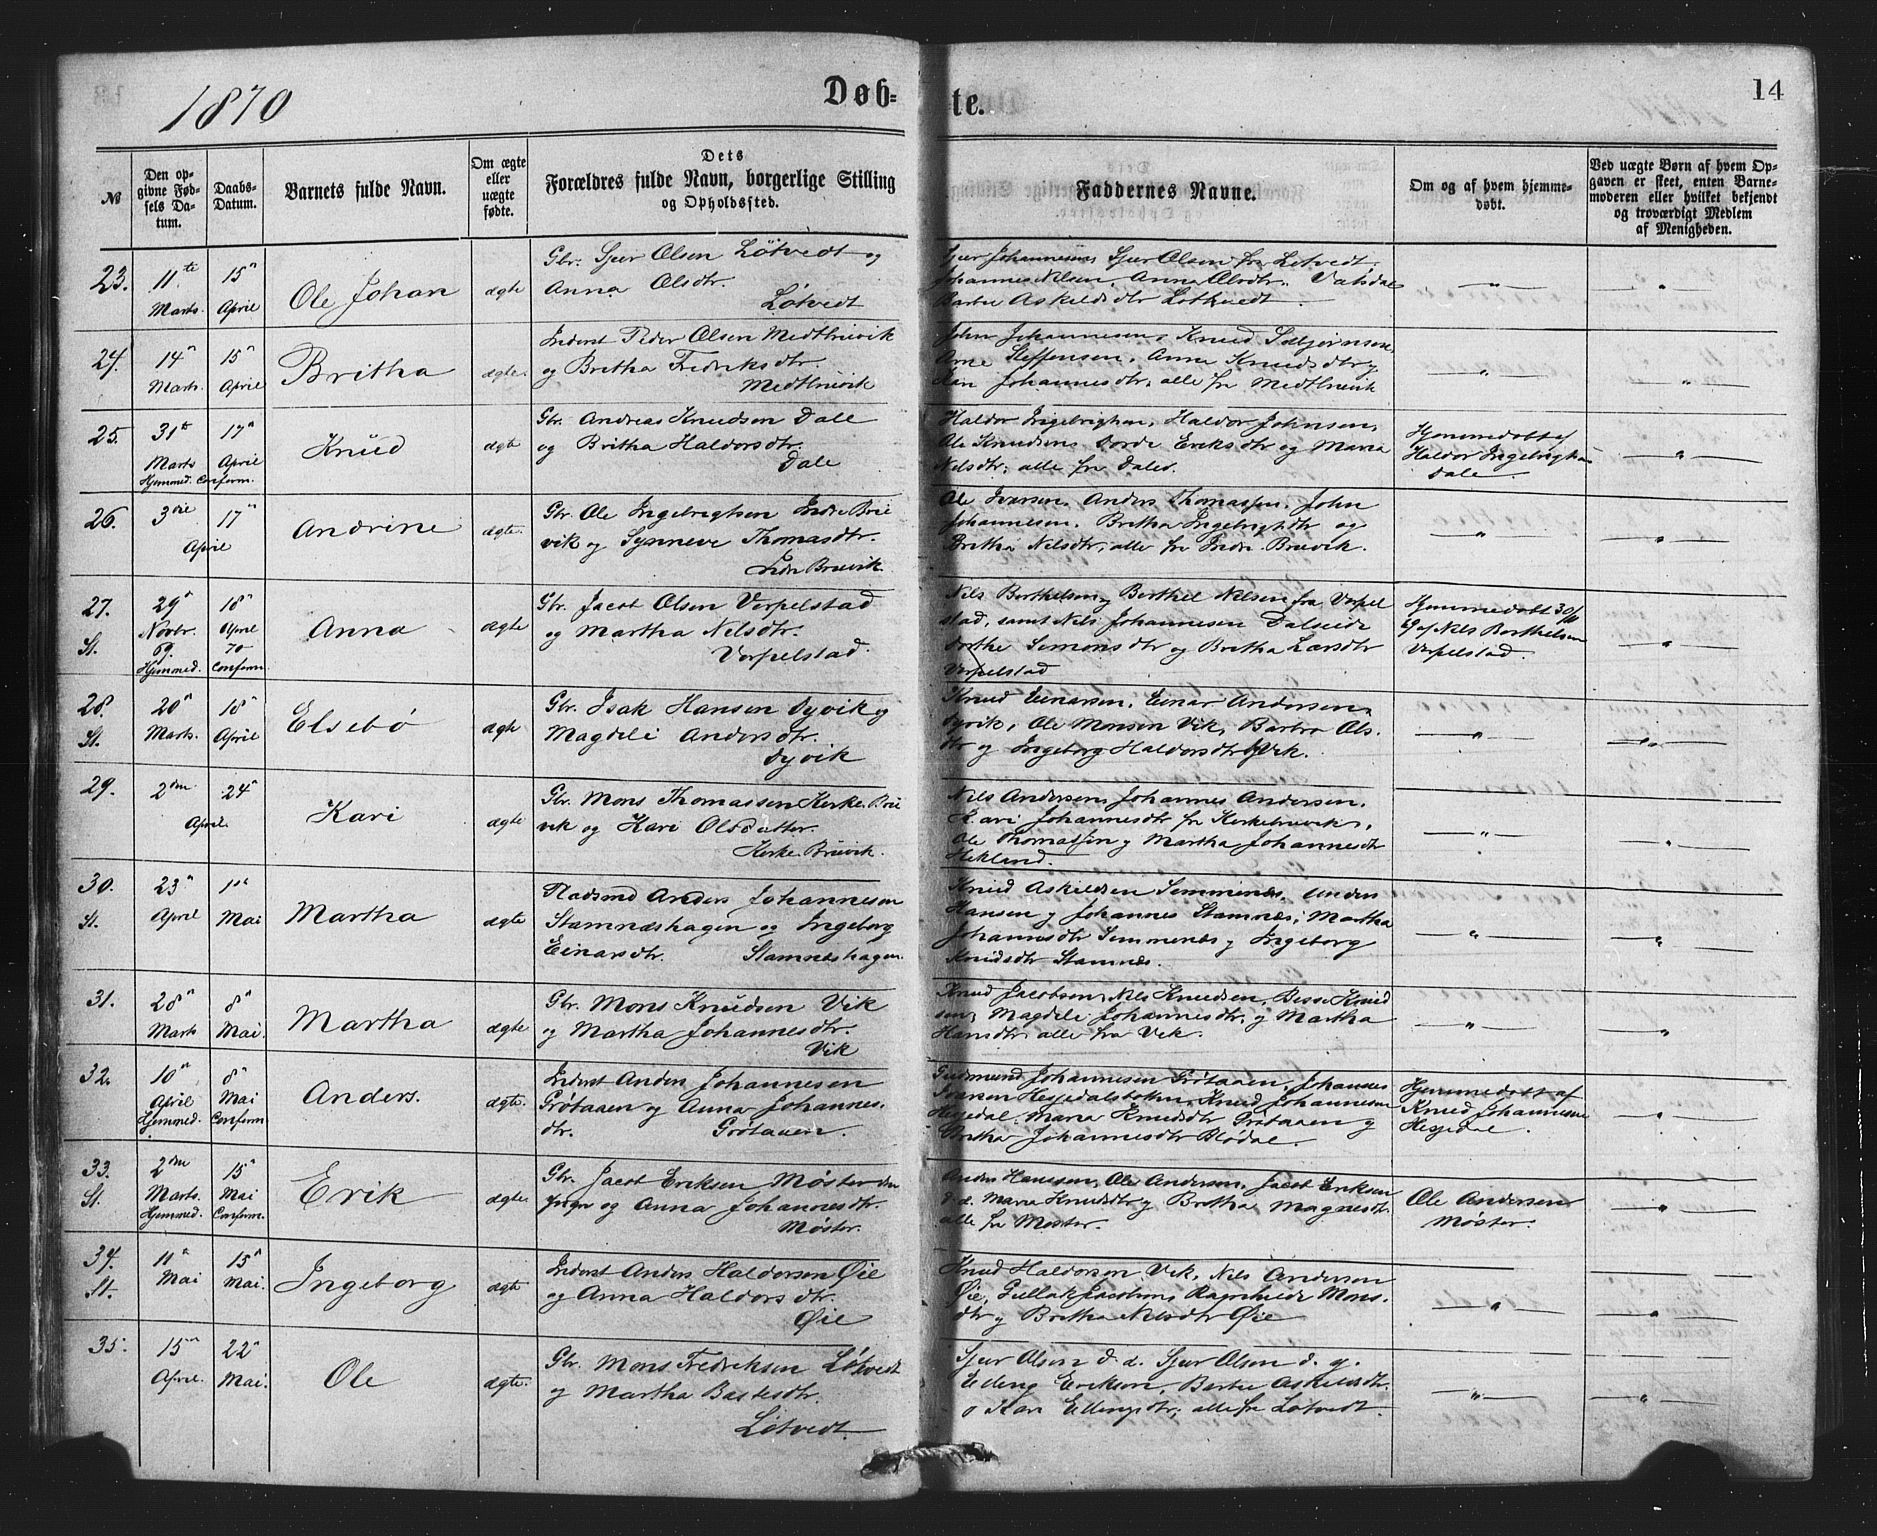 1870 Døb- te. 14
№
Den opgivne Fødsels Datum.
Daabs-Datum.
Barnets fulde Navn.
Om ægte eller uægte fødte.
Dets Forældres fulde Navn, borgerlige Stilling og Opholdssted.
Faddernes Navne.
Om og af hvem hjemmedøbt.
Ved uægte Børn af hvem Opgaven er skeet, enten Barnemoderen eller hvilket bekjendt og troværdigt Medlem af Menigheden.
23. 11te Marts 15n April Ole Johan ægte
Gbr. Sjur Olsen Løtvedt og
Anna Olsdtr.
Løtvedt
Sjur Johannesens Sjur Olsen fra Løtvedt.
Johannes Nilsen, Anna Olsdtr. Vatsdal
Barbu Askildsdtr Løtvedt.
— " — — " —
24. 14n Marts. 15n April Britha ægte.
Inderst Peder Olsen Medtbruvik
og Britha Fredriksdtr.
Medtbruvik
John Johannesen, Knud Solbjørnsen,
Arne Steffensen, Anna Knudsdtr og
Kari Johannesdtr, alle fra Medtbruvik
— " — — " —
25. 31te Marts Hjemmed. 17n April Conferm. Knud ægte
Gbr. Andreas Knudsen Dale
og Britha Haldorsdtr.
Dale
Haldor Ingebrigtsen, Haldor Johnsen,
Ole Knudsens Dorde Eriksdtr og Maria
Nilsdtr, alle fra Dale.
Hjemmedøbt af
Haldor Ingebrigtsen
Dale.
— " —
26. 3die April 17n Andrine ægte.
Gbr. Ole Ingebrigtsen Indre Brue
vik og Synneve Thomasdtr.
Indre Bruvik.
Ole Iversen, Anders Thomassen, John
Johannesen, Britha Ingebrigtsdtr og
Britha Nilsdtr, alle fra Indre Bruvik.
— " — — " —
27. St. 29n Novbr. 69. Hjemmed. 18n April 70 Conferm. Anna ægte
Gbr. Jacob Olsen Vorpelstad
og Martha Nilsdtr.
Vorpelstad.
Nils Berthelsen, Berthel Nilsen fra Vorpel
stad, samt Nils Johannesen Dalseide
Dorthe Simonsdtr og Britha Larsdtr
Vorpelstad
Hjemmedøbt 30/11
69 af Nils Berthelsen
Vorpelstad.
— " —
28. St. 20n Marts. 18n April Elsebø ægte
Gbr. Isak Hansen Dyvik og
Magdeli Andersdtr.
Dyvik
Knud Einarsen, Einar Andersen,
Dyvik, Ole Monsen Vik, Barbro Ols-
dtr og Ingeborg Haldorsdtr Vik.
— " — — " —
29. 2den April. 24n Kari ægte
Gbr. Mons Thomassen Kirke Brue
vik og Kari Olsdatter.
Kirke Bruvik.
Nils Andersen, Johannes Andersen,
Kari Johannesdtr fra Kirkebruvik,
Ole Thomassen og Martha Johannesdtr
Hekland.
— " — — " —
30. St. 23n April 1ste Mai Martha ægte
Pladsmd Anders Johannesen
Stamnæshagen og Ingeborg
Einarsdtr. Stamnæshagen.
Knud Askildsen Semmenæs, Anders
Hansen og Johannes Stamnæs, Martha
Johannesdtr Semmenæs og Ingeborg
Knudsdtr Stamnæs.
— " — — " —
31. 28n Marts 8n Mai. Martha ægte
Gbr. Mons Knudsen Vik
og Martha Johannesdtr.
Vik
Knud Jacobsen, Nils Knudsen, Besse Knud
sen, Magdeli Johannesdtr. og Martha
Hansdtr, alle fra Vik.
— " — — " —
32. 10n April Hjemmed. 8n Mai Conferm Anders. ægte.
Inderst Anders Johannesen
Grøtaaen og Anna Johannes-
dtr. Grøtaaen.
Gudmund Johannesen Grøtaaen, Johannes
Ivarsen Hesjedalstøken, Knud Johannesen
Hesjedal, Maria Knudsdtr Grøtaaen og
Britha Johannesdtr Rødal.
Hjemmedøbt af
Knud Johannesen
Hesjedal.
— " —
33. St. 2den Marts. Hjemmed. 15n Mai Conferm. Erik ægte.
Gbr. Jacob Eriksen Møster den
yngre og Anna Johannesdtr.
Møster.
Anders Hansen, Ole Andersen, Jacob Eriksen
d. æ. Maria Knudsdtr og Britha Magnesdtr.
alle fra Møster.
Ole Andersen
Møster.
— " —
34. St. 11n Mai 15n Mai. Ingeborg ægte
Inderst Anders Haldorsen Øie
og Anna Haldorsdtr.
Øie
Knud Haldorsen Vik, Nils Andersen
Øie, Gullak Jacobsen, Ragnhilde Mons-
dtr og Britha Nilsdtr Øie
— " — — " —
35. 15n April. 22n Mai. Ole ægte.
Gbr. Mons Fredriksen Løtvedt
og Martha Bastesdtr.
Løtvedt.
Sjur Olsen d. æ. Sjur Olsen d. y.
Elling Erikson, Barbu Askildsdtr.
og Kari Ellingsdtr; alle fra Løtvedt.
— " — — " —